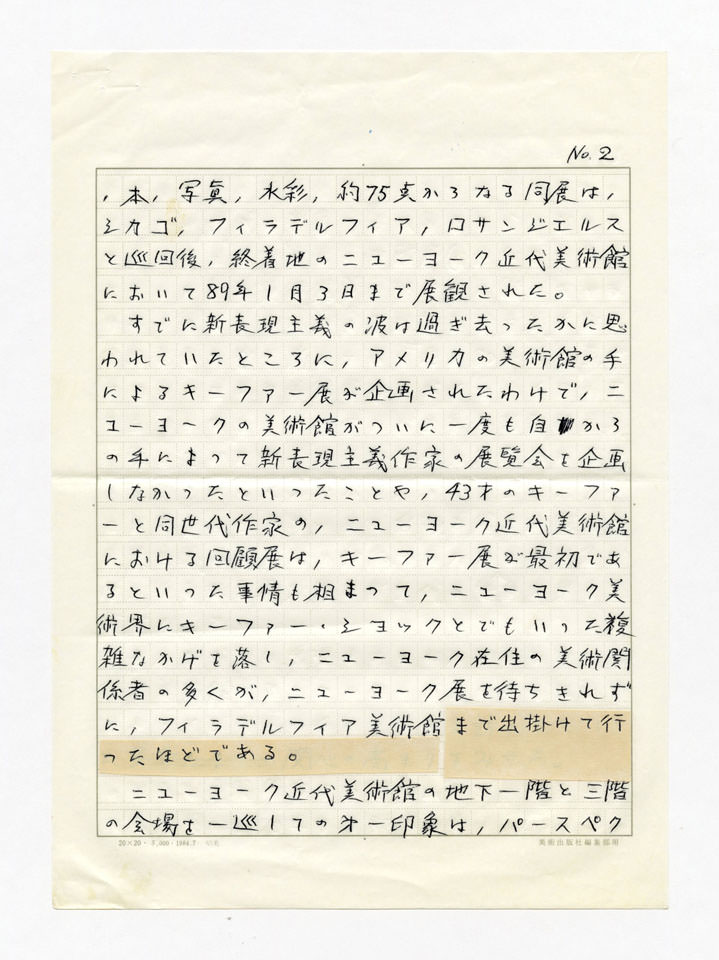 No. 2
，本，写真，水彩，約75点からなる同展は，
シカゴ，フィラデルフィア，ロサンジェルス
と巡回後，終着地のニューヨーク近代美術館
において89年1月3日まで展観された。
すでに新表現主義の波は過ぎ去ったかに思
われていたところに，アメリカの美術館の手
によるキーファー展が企画されたわけで，ニ
ューヨークの美術館がついに一度も自から
の手によって新表現主義作家の展覧会を企画
しなかったといったことや，43才のキーファ
ーと同世代作家の，ニューヨーク近代美術館
における回顧展は，キーファー展が最初であ
るといった事情も相まって，ニューヨーク美
術界にキーファー・ショックとでもいった複
雑なかげを落し，ニューヨーク在住の美術関
係者の多くが，ニューヨーク展を待ちきれず
に，フィラデルフィア美術館まで出掛けて行
ったほどである。
ニューヨーク近代美術館の地下一階と三階
の会場を一巡しての第一印象は，パースペク
20×20・ 5,000・1984.7 美術出版社編集部用